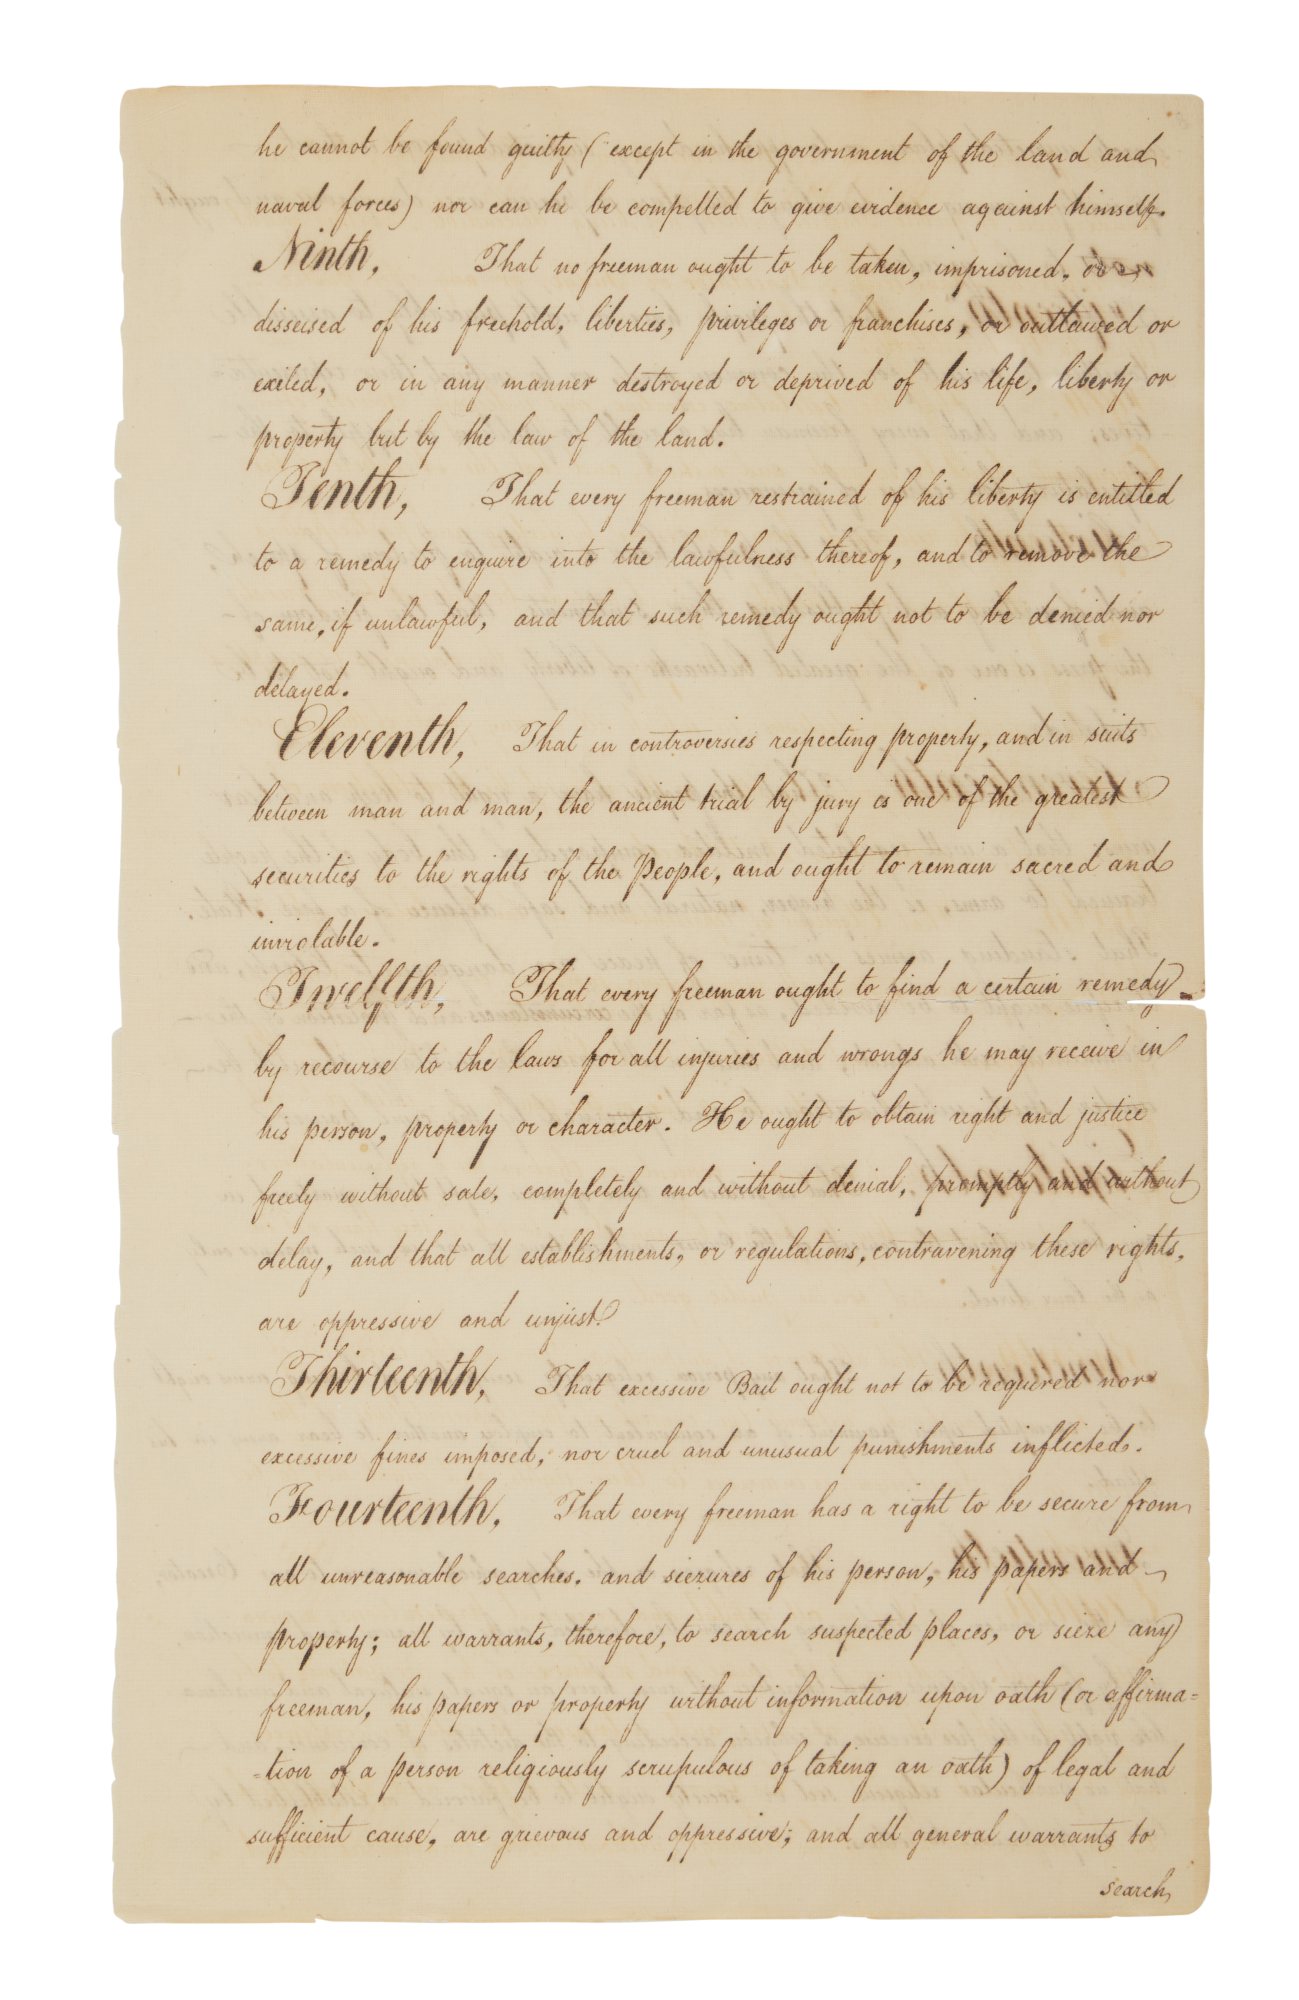 he cannot be found guilty (except in the government of the land and
naval forces) nor can he be compelled to give evidence against himself.
Ninth, That no freeman ought to be taken, imprisoned, or
disseised of his freehold, liberties, privileges or franchises, or outlawed or
exiled, or in any manner destroyed or deprived of his life, liberty or
property but by the law of the land.
Tenth, That every freeman restrained of his liberty is entitled
to a remedy to enquire into the lawfulness thereof, and to remove the
same, if unlawful, and that such remedy ought not to be denied nor
delayed.
Eleventh, That in controversies respecting property, and in suits
between man and man, the ancient trial by jury is one of the greatest
securities to the rights of the People, and ought to remain sacred and
inviolable.
Twelfth, That every freeman ought to find a certain remedy
by recourse to the laws for all injuries and wrongs he may receive in
his person, property or character. He ought to obtain right and justice
freely without sale, completely and without denial, promptly and without
delay, and that all establishments, or regulations, contravening these rights,
are oppressive and unjust.
Thirteenth, That excessive Bail ought not to be required nor
excessive fines imposed, nor cruel and unusual punishments inflicted.
Fourteenth, That every freeman has a right to be secure from
all unreasonable searches, and siezures of his person, his papers and
property; all warrants, therefore, to search suspected places, or sieze any
freeman, his papers or property without information upon oath (or affirma=
-tion of a person religiously scrupulous of taking an oath) of legal and
sufficient cause, are grievous and oppressive; and all general warrants to
search